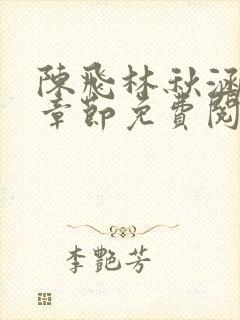 陳飛林秋涵
章節免費閱
李艷芳